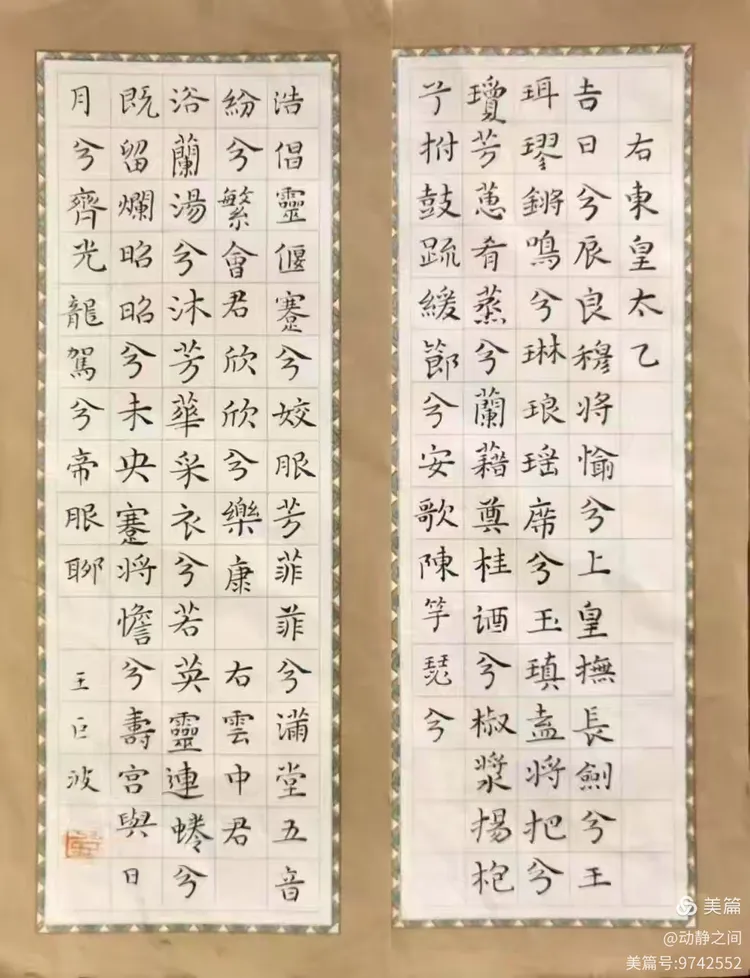 右東皇太乙
吉日兮辰良穆将愉兮上皇撫長劍兮王
珥璆鏘鳴兮琳琅瑶席兮玉瑱盍将把兮
瓊芳蕙肴蒸兮蘭藉奠桂酒兮椒漿揚枹
兮拊鼓疏緩節兮安歌陳竽瑟兮
浩倡靈偃蹇兮姣服芳菲菲兮滿堂五音
紛兮繁會君欣欣兮樂康 右雲中君
浴蘭湯兮沐芳華采衣兮若英靈連蜷兮
既留爛昭昭兮未央蹇将憺兮壽宮與日
月兮齊光龍駕兮帝服聊 王巨波
美篇
@动静之间
美篇号:9742552